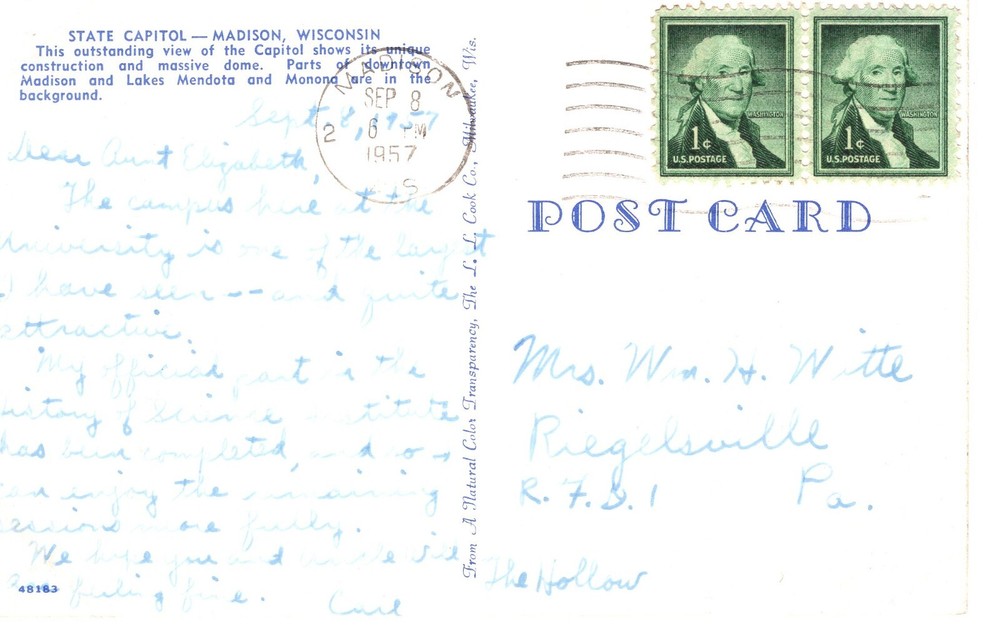 STATE CAPITOL — MADISON, WISCONSIN
This outstanding view of the Capitol shows its unique
construction and massive dome. Parts of downtown
Madison and Lakes Mendota and Monona are in the
background.
Sept 8, 1957
Dear Aunt Elizabeth,
The campus here at the
University is one of the largest
I have seen -- and quite
attractive.
My official part in the
History of Science institute
has been completed, and so I
can enjoy the remaining
sessions more fully.
We hope you and Uncle Will
are feeling fine.
48183
From A Natural Color Transparency, The L. L. Cook Co., Milwaukee, Wis.
MADISON
SEP 8
2 6 PM
1957
WIS
WASHINGTON
1¢
U.S. POSTAGE
WASHINGTON
1¢
U.S. POSTAGE
POST CARD
Mrs. Wm. H. Witte
Riegelsville
R. F. D. 1 Pa.
The Hollow